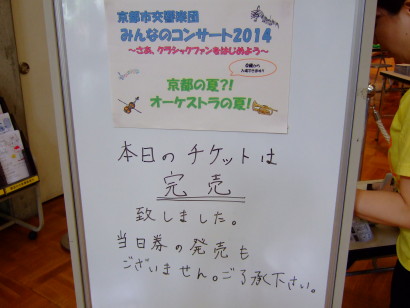 京都市交響楽団
みんなのコンサート2014
～さあ、クラシックファンをはじめよう～
京都の夏?!
オーケストラの夏!
本日のチケットは
完売
致しました。
当日券の発売も
ございません。ご了承下さい。